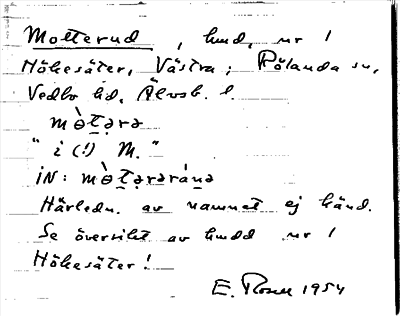 Motterud, hmd, nr 1
Hökesäter, Västra; Rölanda sn,
Vedbo hd, Älvsb. l.
mò̱tərə
" i (!) M. "
iN: mò̱tərəránə
Härledn. av namnet ej känd.
Se översikt av hmdd nr 1
Hökesäter!
E. Rosell 1954